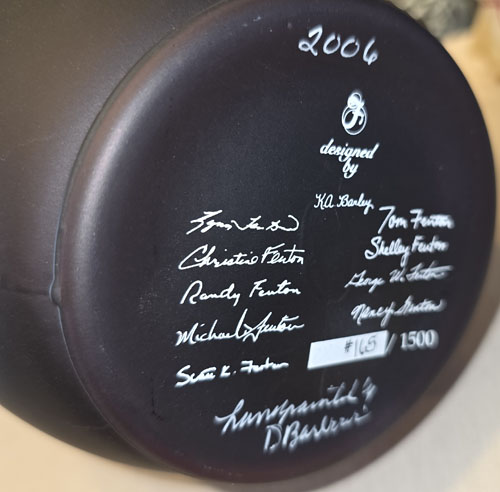 2006
designed
by
K.A. Barley
Tom Fenton
Christine Fenton
Shelley Fenton
Randy Fenton
George W. Fenton
Michael Fenton
Nancy Fenton
Scott K. Fenton
#165 / 1500
handpainted by
D Barbour